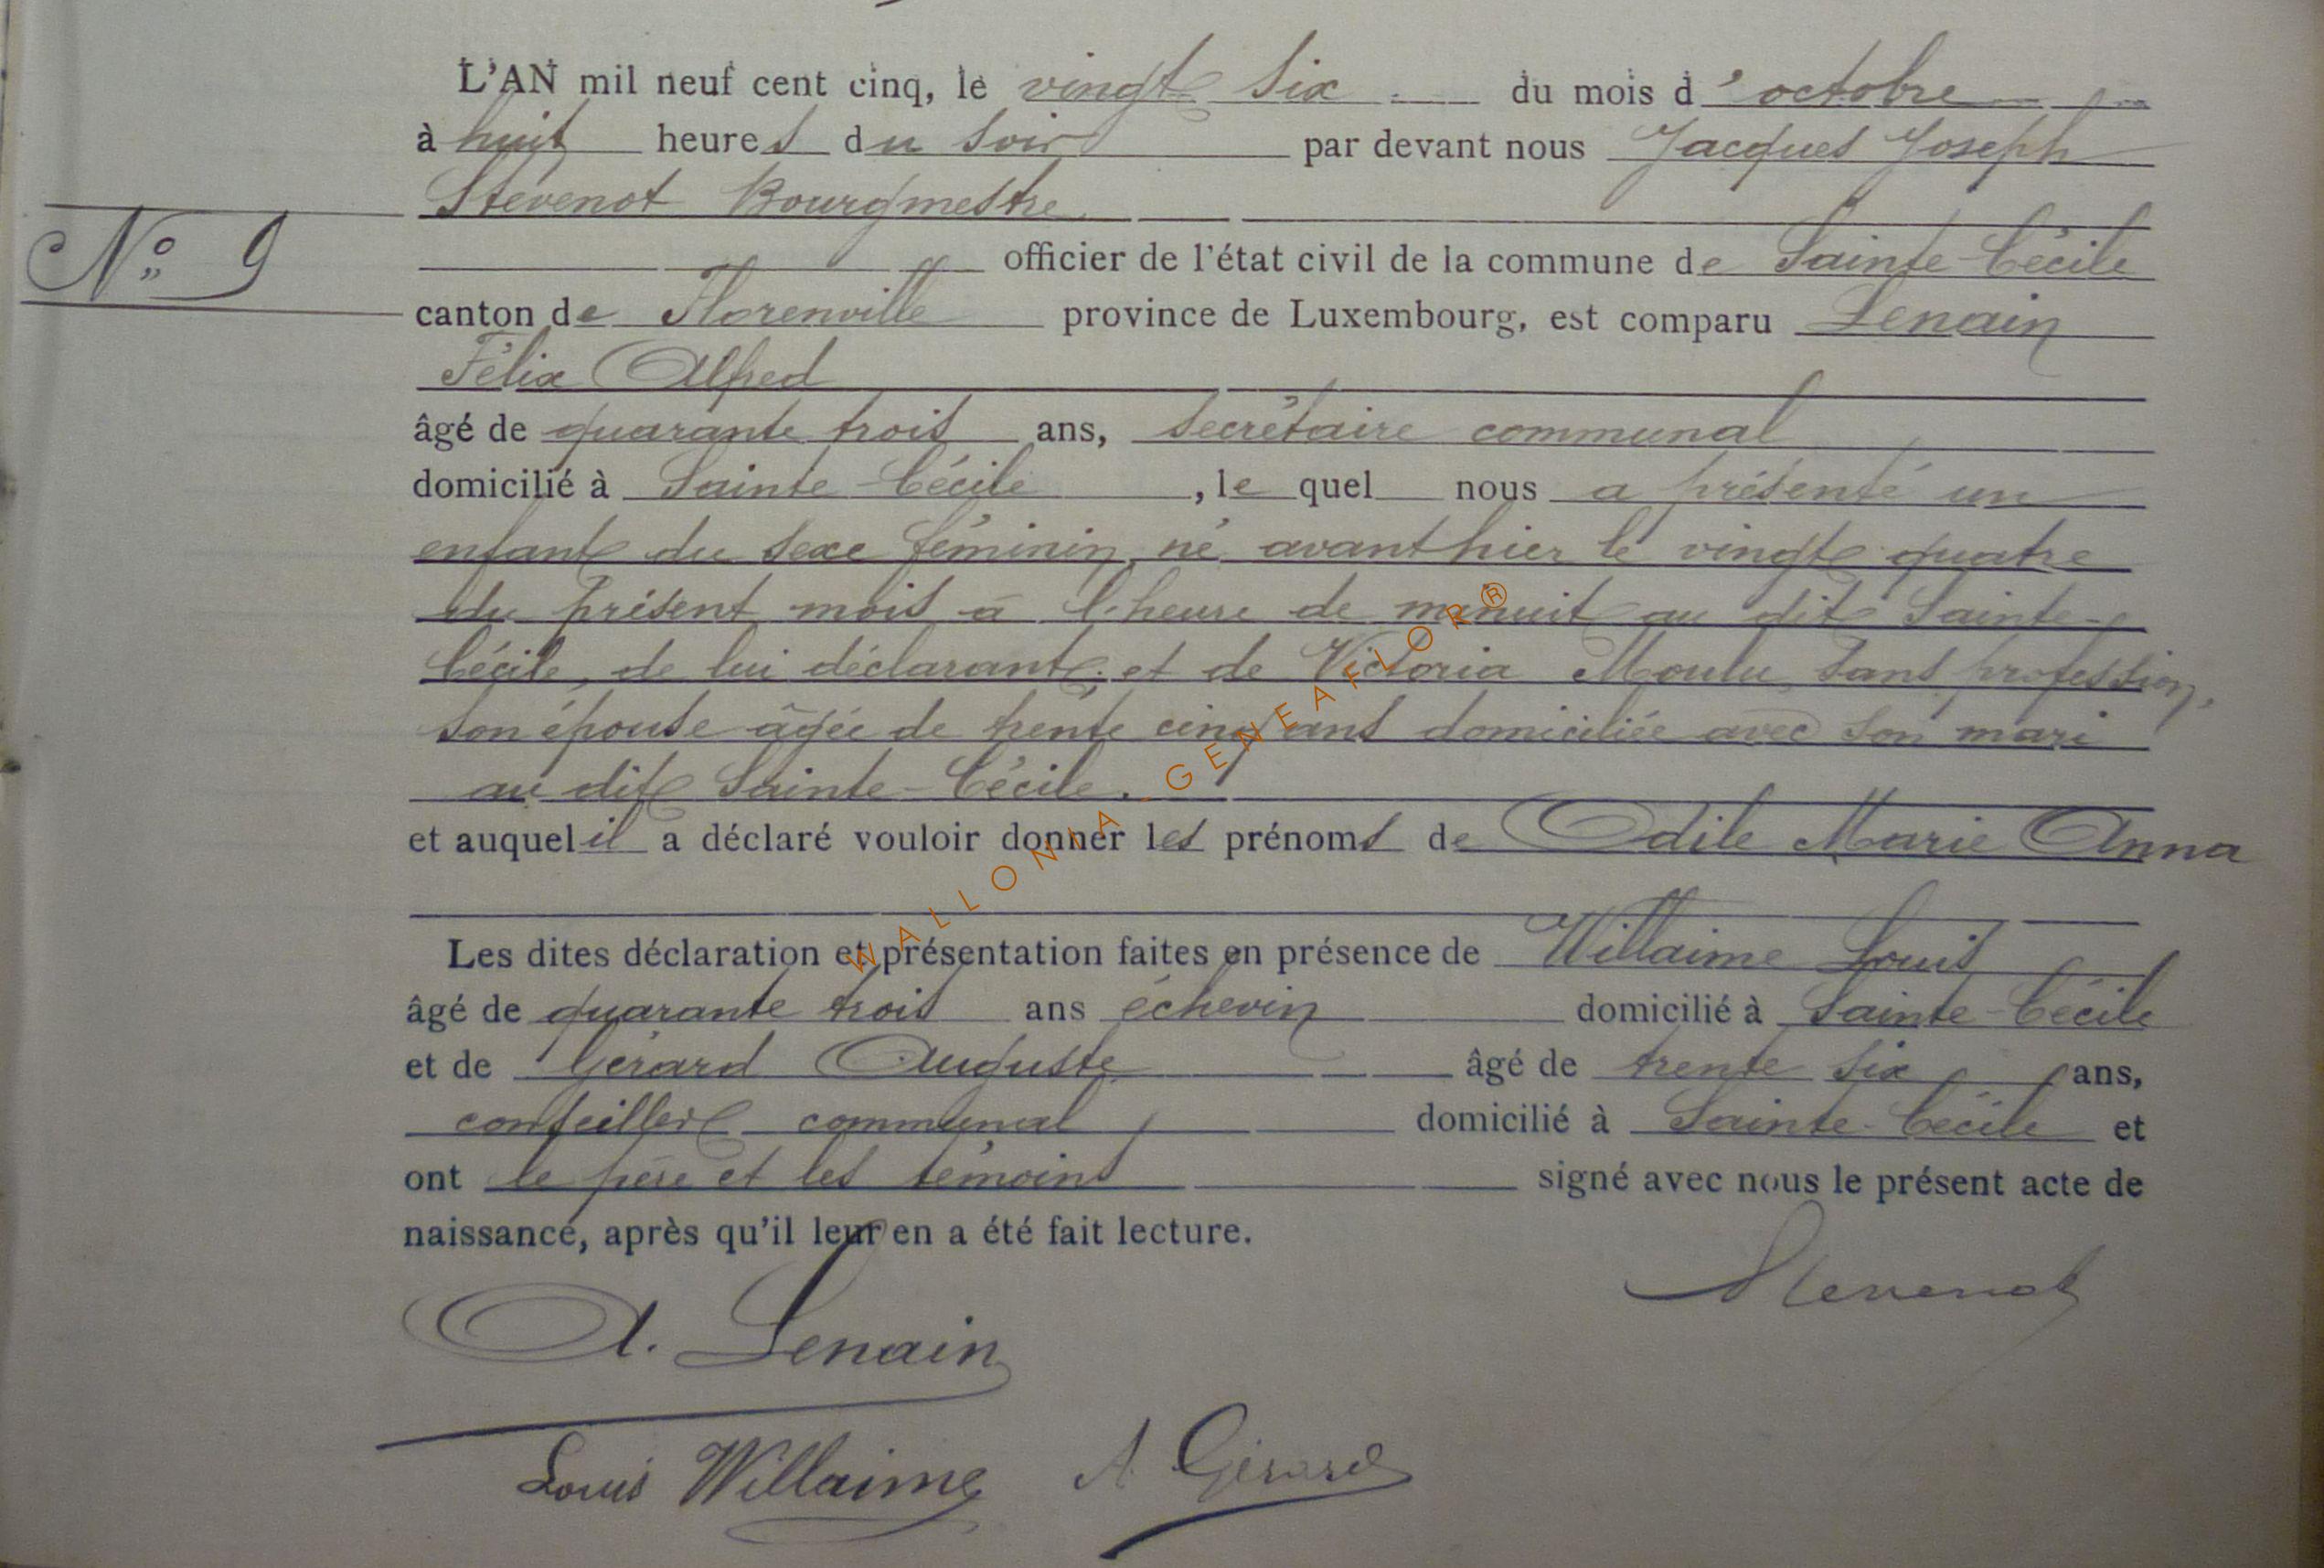 L'AN mil neuf cent cinq, le vingt six du mois d'octobre
à huit heures du soir par devant nous Jacques Joseph
Stévenot Bourgmestre
N° 9
officier de l'état civil de la commune de Sainte-Cécile
canton de Florenville province de Luxembourg, est comparu Lenain
Félix Alfred
âgé de quarante trois ans, secrétaire communal
domicilié à Sainte Cécile, le quel nous a présenté un
enfant du sexe féminin, né avant hier le vingt quatre
du présent mois à l'heure de minuit au dit Sainte-
Cécile, de lui déclarant et de Victoria Moulu, sans profession,
son épouse âgée de trente cinq ans domiciliée avec son mari
au dit Sainte-Cécile.
et auquel il a déclaré vouloir donner les prénoms de Odile Marie Anna
Les dites déclaration et présentation faites en présence de Willaime Louis
âgé de quarante trois ans échevin domicilié à Sainte-Cécile
et de Gérard Auguste âgé de trente six ans,
conseiller communal domicilié à Sainte-Cécile et
ont le père et les témoins signé avec nous le présent acte de
naissance, après qu'il leur en a été fait lecture.
Stevenot
A. Lenain
Louis Willaime A Gérard
WALLONIA-GENEAFLOR®